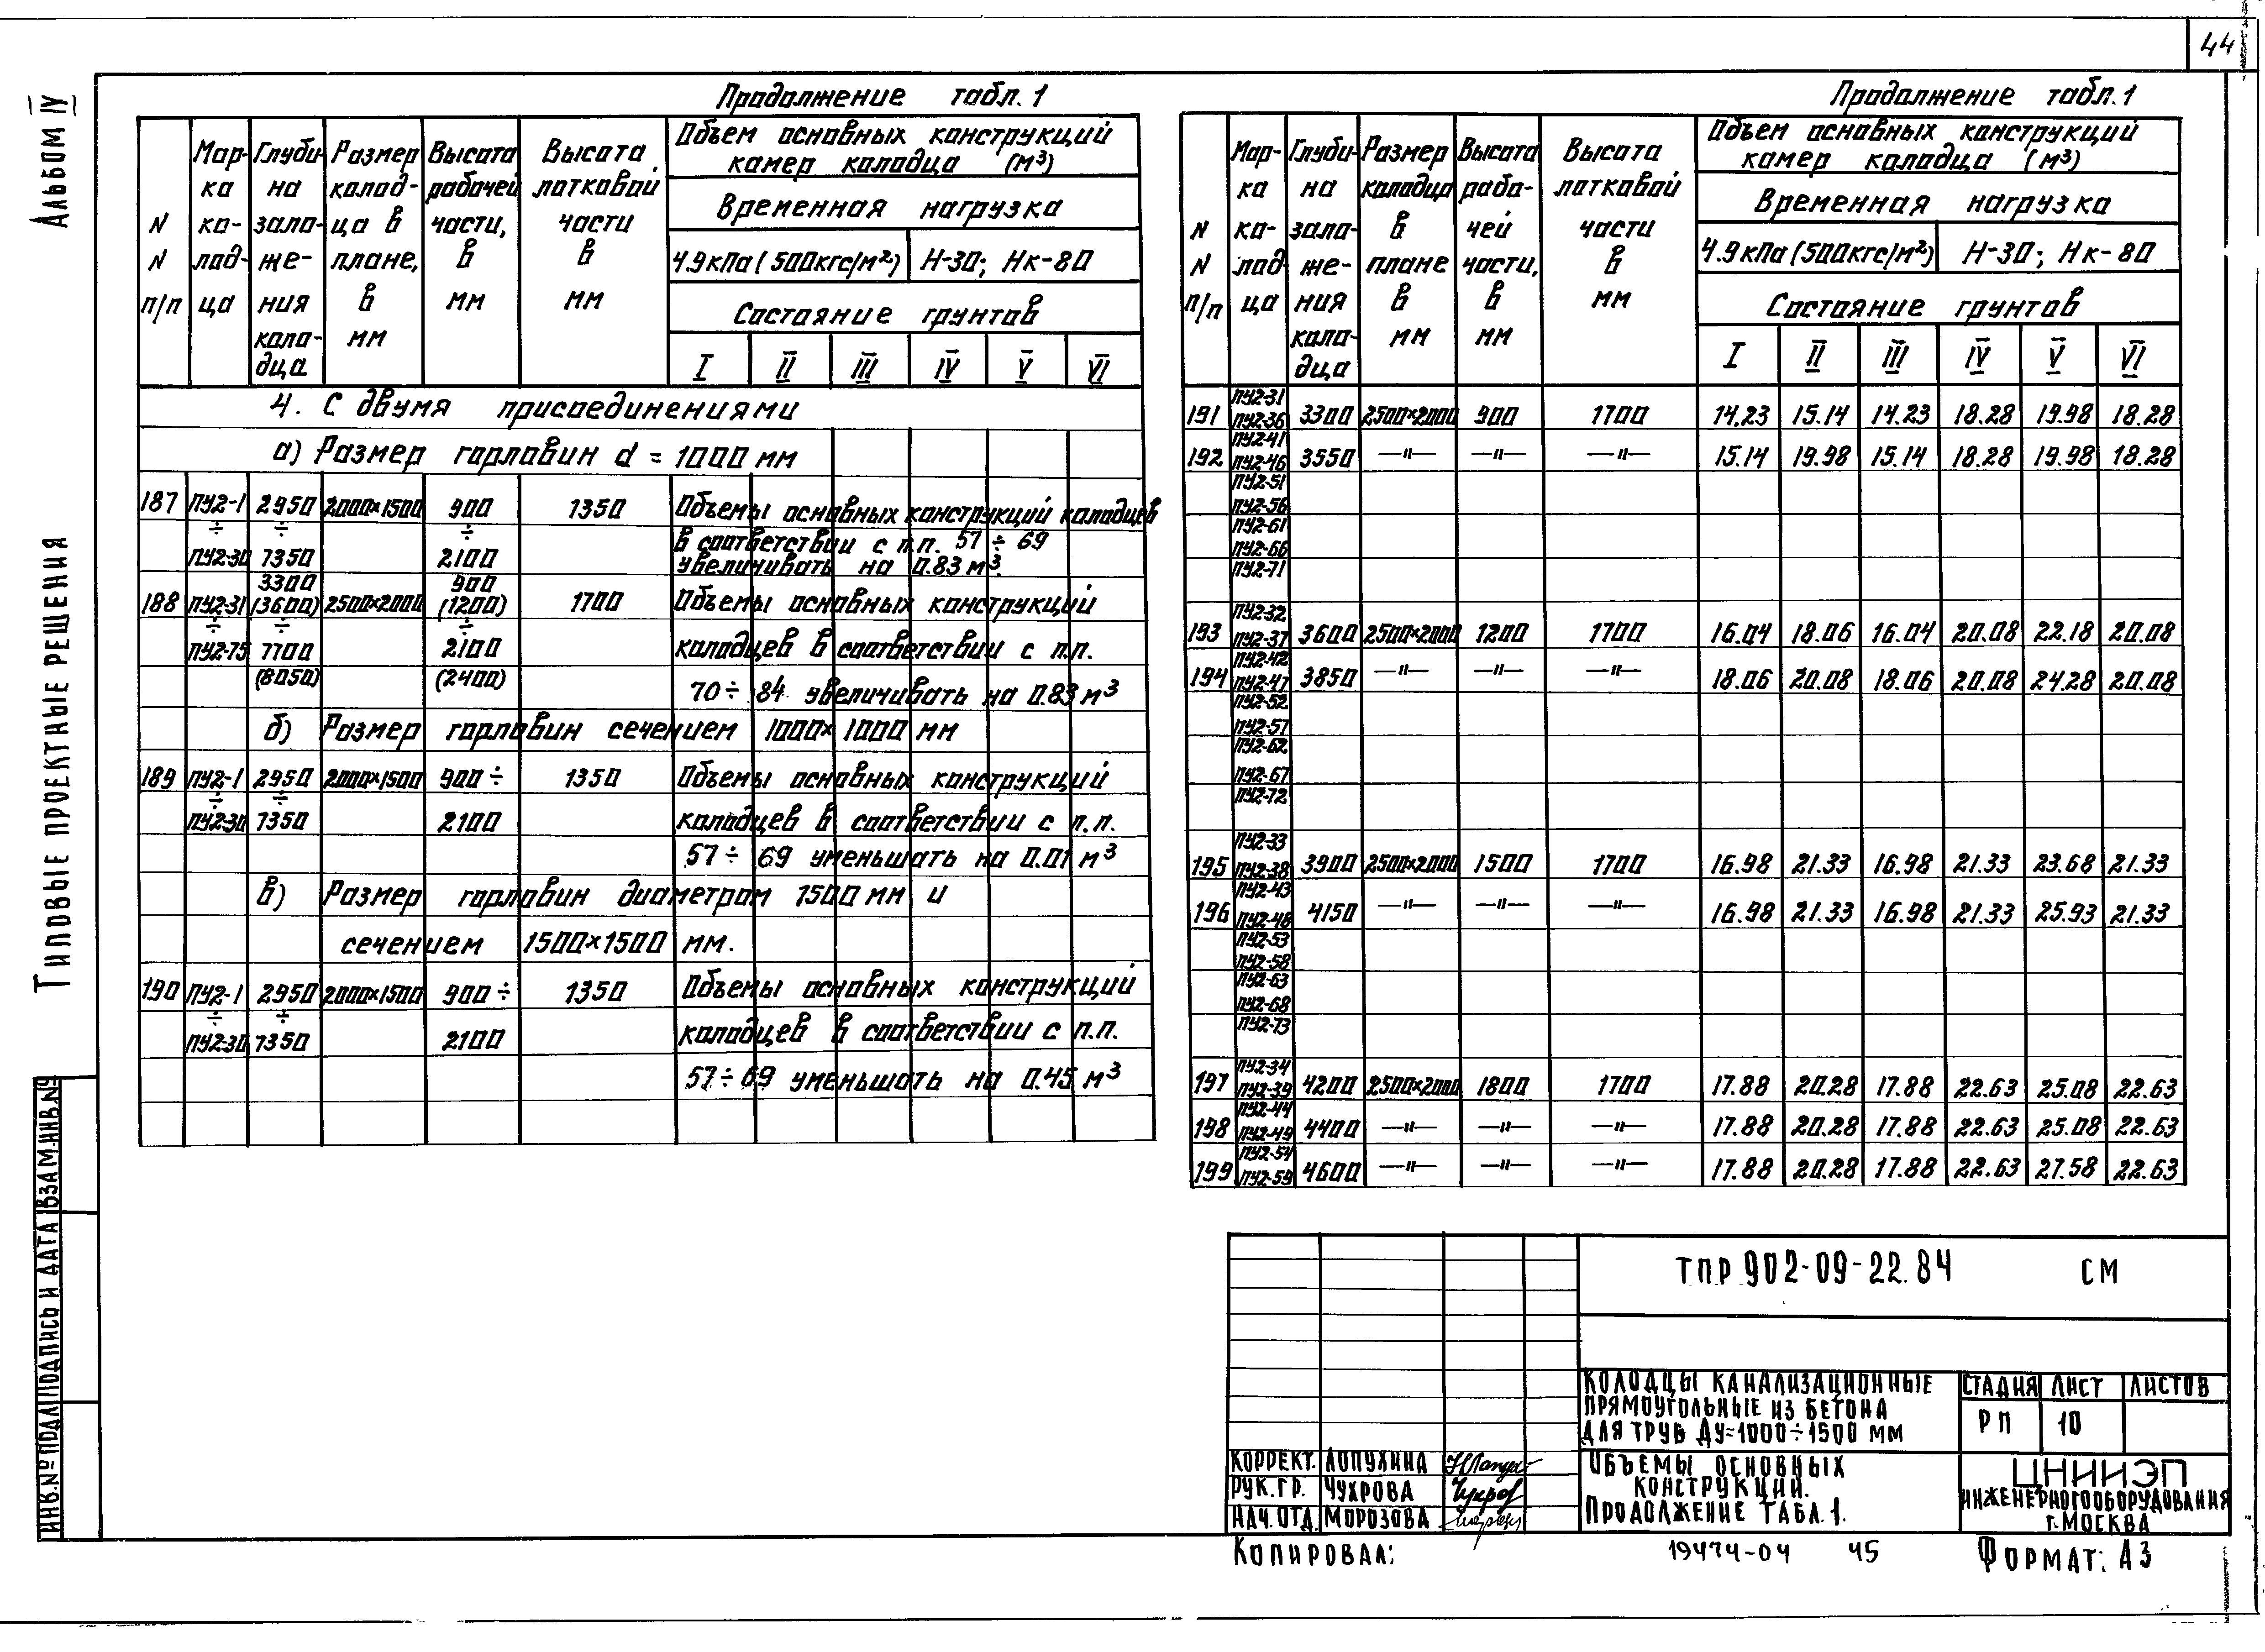 44
Альбом IV
Типовые проектные решения
Продолжение табл. 1
N N п/п
Марка колодца
Глубина заложения колодца
Размер колодца в плане, в мм
Высота рабочей части, в мм
Высота лотковой части в мм
Объем основных конструкций камер колодца (м³)
Временная нагрузка
4.9 кПа (500кгс/м²) Н-30; Нк-80
Состояние грунтов
I II III IV V VI
4. С двумя присоединениями
а) Размер горловин d = 1000 мм
187 ПУ2-1 ÷ ПУ2-30 2950 ÷ 7350 2000×1500 900 ÷ 2100 1350 Объемы основных конструкций колодцев
в соответствии с п.п. 57 ÷ 69
увеличивать на 0.83 м³.
188 ПУ2-31 ÷ ПУ2-75 3300 (3600) ÷ 7700 (8050) 2500×2000 900 (1200) ÷ 2100 (2400) 1700 Объемы основных конструкций
колодцев в соответствии с п.п.
70 ÷ 84 увеличивать на 0.83 м³
б) Размер горловин сечением 1000×1000 мм
189 ПУ2-1 ÷ ПУ2-30 2950 ÷ 7350 2000×1500 900 ÷ 2100 1350 Объемы основных конструкций
колодцев в соответствии с п.п.
57 ÷ 69 уменьшать на 0.01 м³
в) Размер горловин диаметром 1500 мм и
сечением 1500×1500 мм.
190 ПУ2-1 ÷ ПУ2-30 2950 ÷ 7350 2000×1500 900 ÷ 2100 1350 Объемы основных конструкций
колодцев в соответствии с п.п.
57 ÷ 69 уменьшать на 0.45 м³
Продолжение табл. 1
N N п/п
Марка колодца
Глубина заложения колодца
Размер колодца в плане в мм
Высота рабочей части, в мм
Высота лотковой части в мм
Объем основных конструкций камер колодца (м³)
Временная нагрузка
4.9 кПа (500кгс/м²) Н-30; Нк-80
Состояние грунтов
I II III IV V VI
ПУ2-31
191 ПУ2-36 3300 2500×2000 900 1700 14.23 15.14 14.23 18.28 19.98 18.28
ПУ2-41
192 ПУ2-46 3550 —"— —"— —"— 15.14 19.98 15.14 18.28 19.98 18.28
ПУ2-51
ПУ2-56
ПУ2-61
ПУ2-66
ПУ2-71
ПУ2-32
193 ПУ2-37 3600 2500×2000 1200 1700 16.04 18.06 16.04 20.08 22.18 20.08
ПУ2-42
194 ПУ2-47 3850 —"— —"— —"— 18.06 20.08 18.06 20.08 24.28 20.08
ПУ2-52
ПУ2-57
ПУ2-62
ПУ2-67
ПУ2-72
ПУ2-33
195 ПУ2-38 3900 2500×2000 1500 1700 16.98 21.33 16.98 21.33 23.68 21.33
ПУ2-43
196 ПУ2-48 4150 —"— —"— —"— 16.98 21.33 16.98 21.33 25.93 21.33
ПУ2-53
ПУ2-58
ПУ2-63
ПУ2-68
ПУ2-73
ПУ2-34
197 ПУ2-39 4200 2500×2000 1800 1700 17.88 20.28 17.88 22.63 25.08 22.63
ПУ2-44
198 ПУ2-49 4400 —"— —"— —"— 17.88 20.28 17.88 22.63 25.08 22.63
ПУ2-54
199 ПУ2-59 4600 —"— —"— —"— 17.88 20.28 17.88 22.63 27.58 22.63
ИНВ.№ ПОДЛ ПОДПИСЬ И ДАТА ВЗАМ.ИНВ.№
ТПР 902-09-22.84 СМ
КОЛОДЦЫ КАНАЛИЗАЦИОННЫЕ
ПРЯМОУГОЛЬНЫЕ ИЗ БЕТОНА
ДЛЯ ТРУБ ДУ=1000÷1500 ММ
СТАДИЯ ЛИСТ ЛИСТОВ
РП 10
КОРРЕКТ. ЛОПУХИНА
РУК.ГР. ЧУХРОВА
НАЧ.ОТД. МОРОЗОВА
ОБЪЕМЫ ОСНОВНЫХ
КОНСТРУКЦИЙ.
ПРОДОЛЖЕНИЕ ТАБЛ. 1.
ЦНИИЭП
ИНЖЕНЕРНОГО ОБОРУДОВАНИЯ
Г.МОСКВА
КОПИРОВАЛ: 19474-04 45 ФОРМАТ: А3